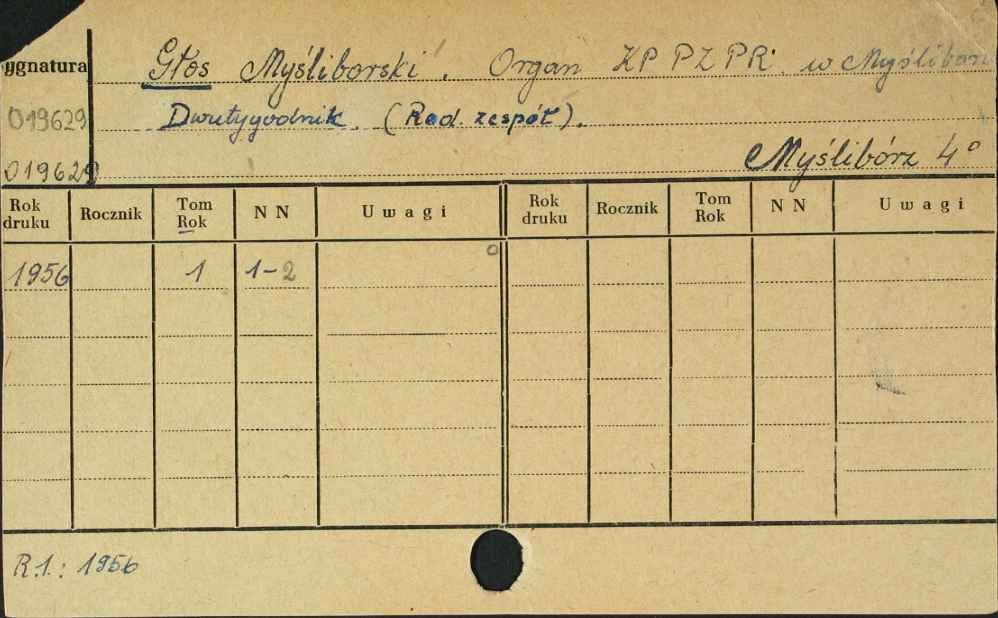 ygnatura Głos Myśliborski. Organ KP PZPR. w Myślibórz
019629 Dwutygodnik. (Red. zespół).
019629 Myślibórz 4°
Rok druku Rocznik Tom Rok N N Uwagi Rok druku Rocznik Tom Rok N N Uwagi
1956 1 1-2
R.1.: 1956